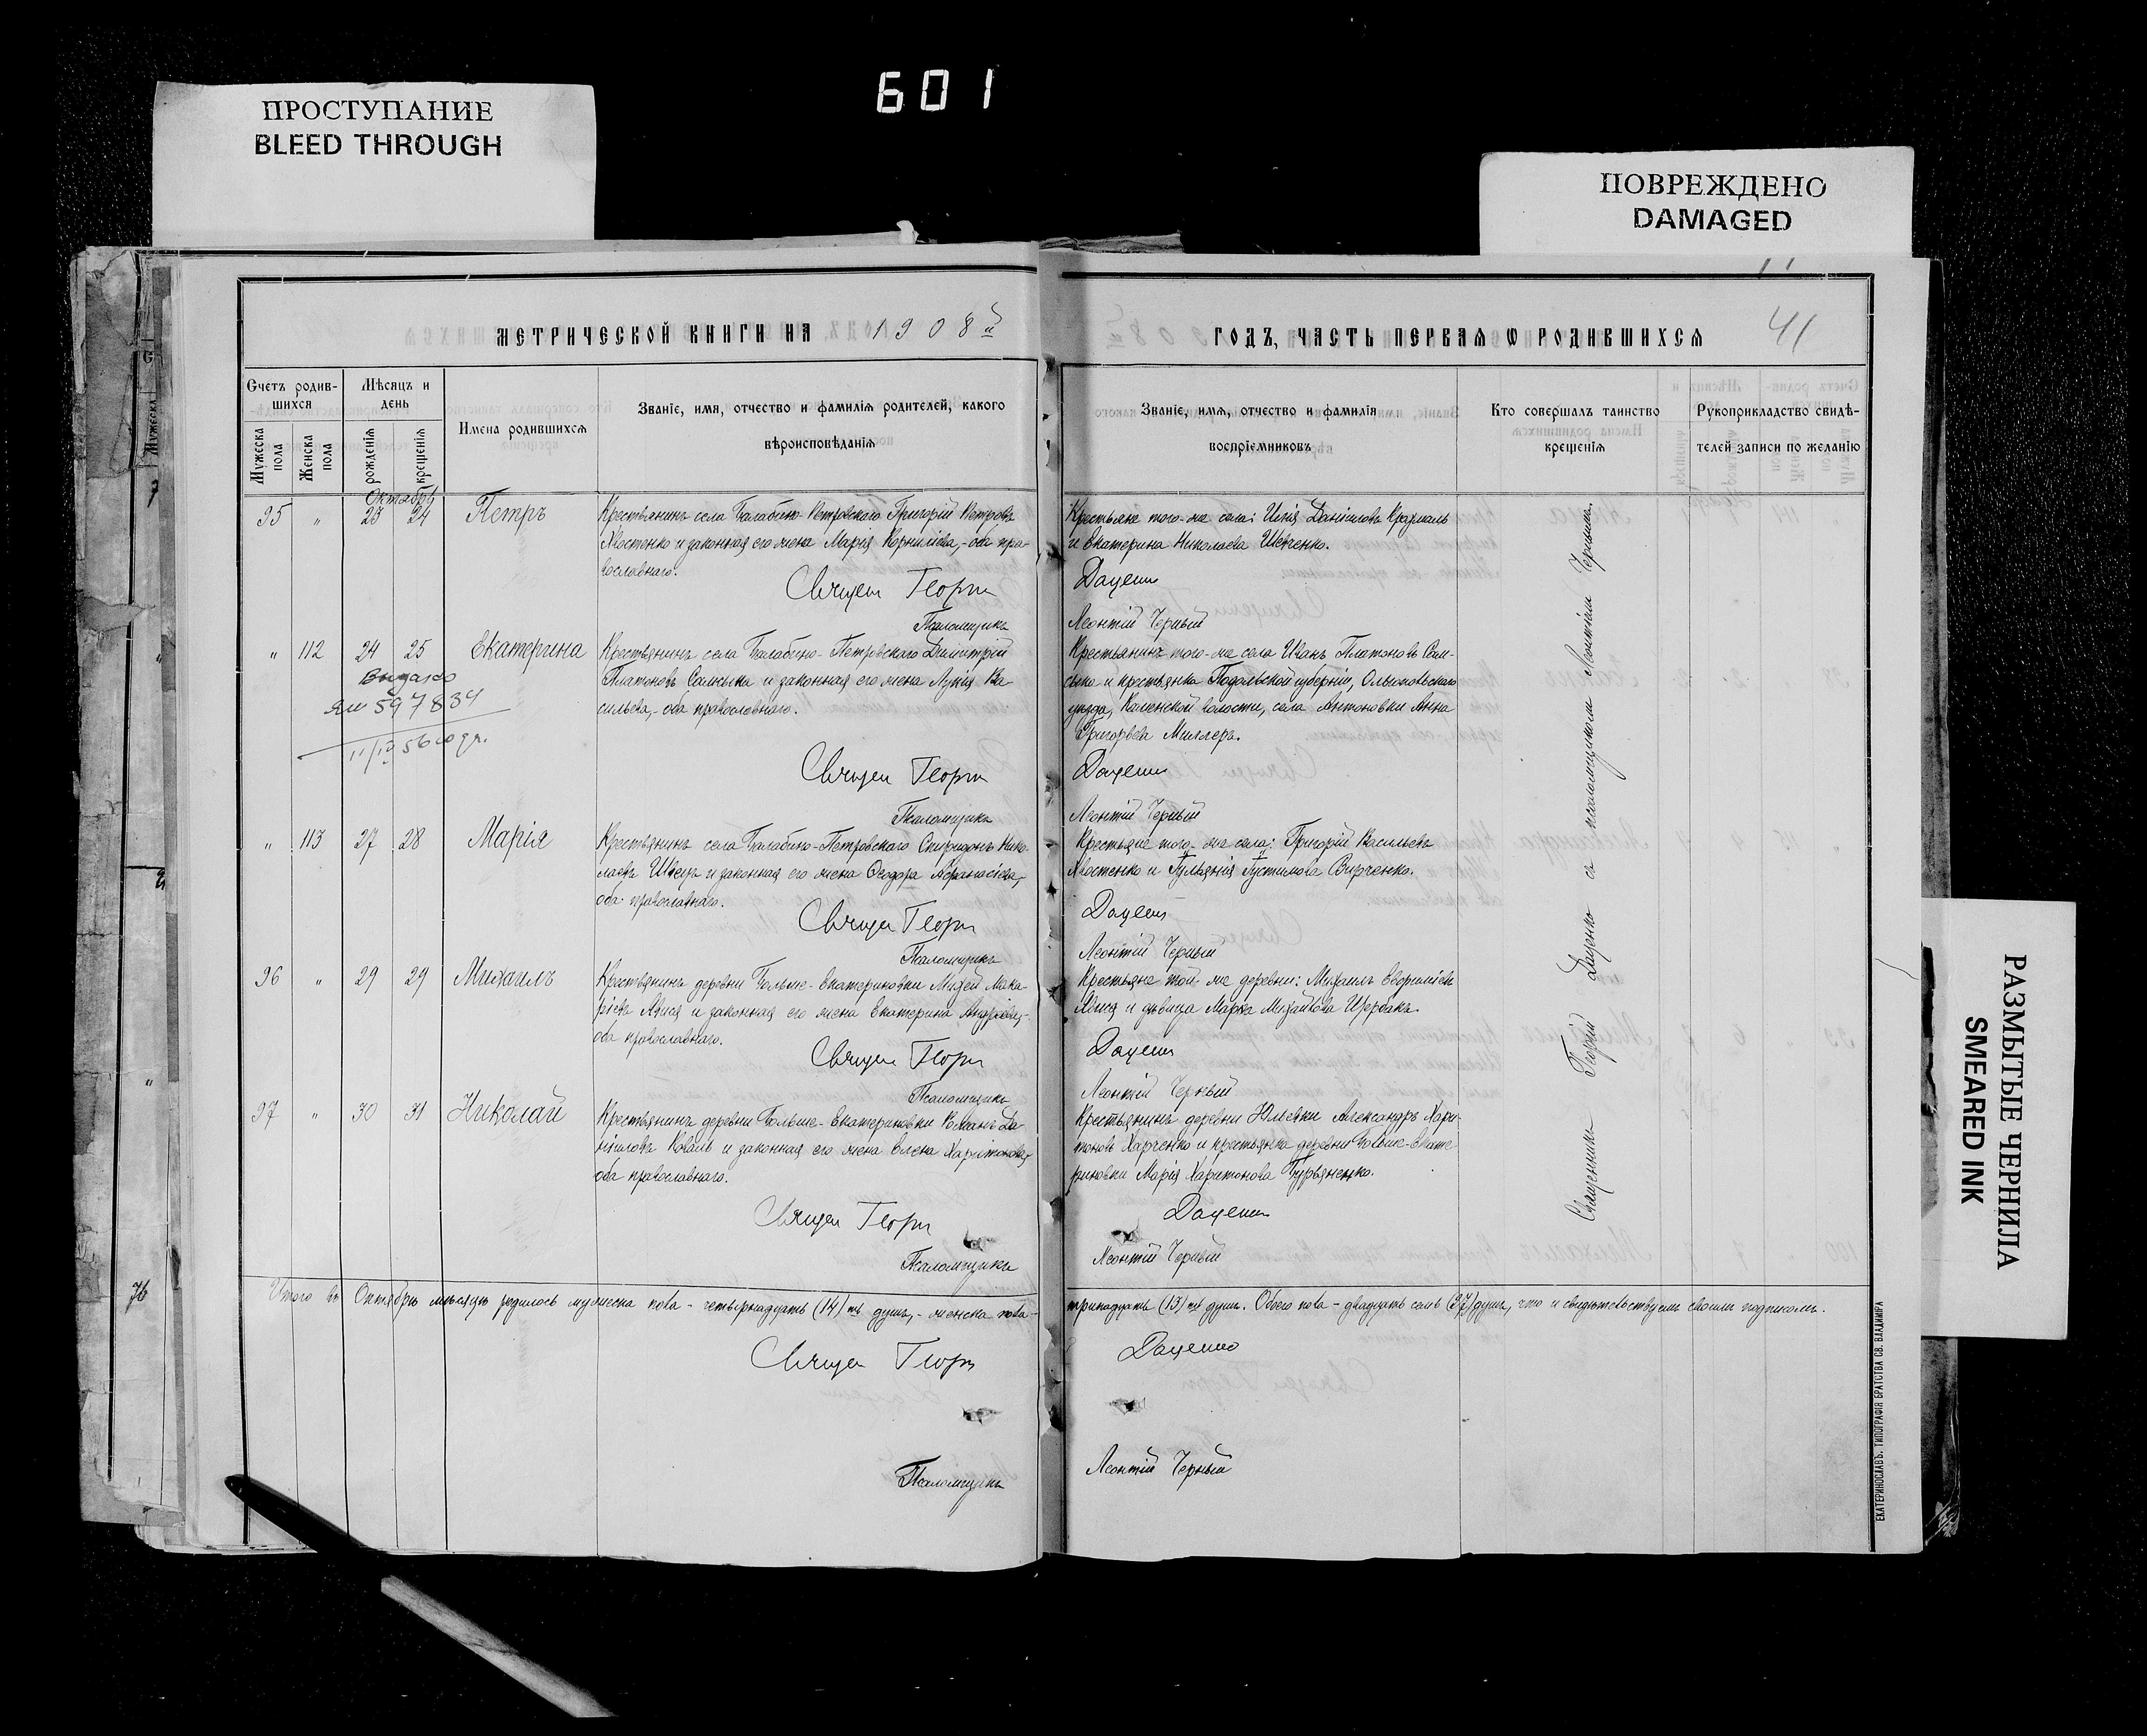 601
ПРОСТУПАНИЕ
BLEED THROUGH
ПОВРЕЖДЕНО
DAMAGED
МЕТРИЧЕСКОЙ КНИГИ НА 1908й
ГОДЪ, ЧАСТЬ ПЕРВАЯ Ѡ РОДИВШИХСЯ
41
Счетъ родив-
шихся
Мѣсяцъ и
день
Имена родившихся
Званіе, имя, отчество и фамилія родителей, какого
вѣроисповѣданія
Мужеска
пола
Женска
пола
рожденія
крещенія
Званіе, имя, отчество и фамилія
воспріемниковъ
Кто совершалъ таинство
крещенія
Рукоприкладство свидѣ-
телей записи по желанію
Октябрь
95 " 23 24 Петръ
Крестьянинъ села Балабино-Петровскаго Григорій Петровъ
Хвостенко и законная его жена Марія Корниліева,- оба пра-
вославнаго.
Священ Георги
Псаломщикъ
Крестьяне того-же села: Илія Даніиловъ Крахмаль
и Екатерина Николаева Шевченко.
Даценко
Леонтій Черный
" 112 24 25 Екатерина
Выдано
597834
Крестьянинъ села Балабино-Петровскаго Димитрій
Платоновъ и законная его жена Лукія Ва-
сильева,- оба православнаго.
Священ Георги
Псаломщикъ
Крестьянинъ того-же села Иванъ Платоновъ
и крестьянка Подольской губерніи, Ольгопольскаго
уѣзда, Каменской волости, села Антоновки Анна
Григорьева Миллеръ.
Даценко
Леонтій Черный
" 113 27 28 Марія
Крестьянинъ села Балабино-Петровскаго Спиридонъ Нико-
лаевъ Швецъ и законная его жена Ѳеодора Аѳанасіева,-
оба православнаго.
Священ Георги
Псаломщикъ
Крестьяне того-же села: Григорій Васильевъ
Хвостенко и Іульянія Іустинова Вирченко.
Даценко
Леонтій Черный
96 " 29 29 Михаилъ
Крестьянинъ деревни Больше-Екатериновки Михей Мака-
ріевъ и законная его жена Екатерина Андреева,-
оба православнаго.
Священ Георги
Псаломщикъ
Крестьяне той-же деревни: Михаилъ Евфиміевъ
и дѣвица Марѳа Михайлова Щербакъ.
Даценко
Леонтій Черный
97 " 30 31 Николай
Крестьянинъ деревни Больше-Екатериновки Романъ Да-
ніиловъ Коваль и законная его жена Елена Харитонова,-
оба православнаго.
Священ Георги
Псаломщикъ
Крестьянинъ деревни Юльевки Александръ Хари-
тоновъ Харченко и крестьянка деревни Больше-Екате-
риновки Марія Харитонова Бурьяненко.
Даценко
Леонтій Черный
Священникъ Георгій Даценко съ псаломщикомъ Леонтіемъ Чернымъ.
Итого въ Октябрѣ мѣсяцѣ родилось мужеска пола - четырнадцать (14)ть душъ,- женска пола-
тринадцать (13)ть душъ. Обоего пола - двадцать семь (27) душъ, что и свидѣтельствуемъ своимъ подписомъ.
Священ Георги
Даценко
Псаломщикъ
Леонтій Черный
ЕКАТЕРИНОСЛАВЪ. ТИПОГРАФІЯ БРАТСТВА СВ. ВЛАДИМІРА
РАЗМЫТЫЕ ЧЕРНИЛА
SMEARED INK